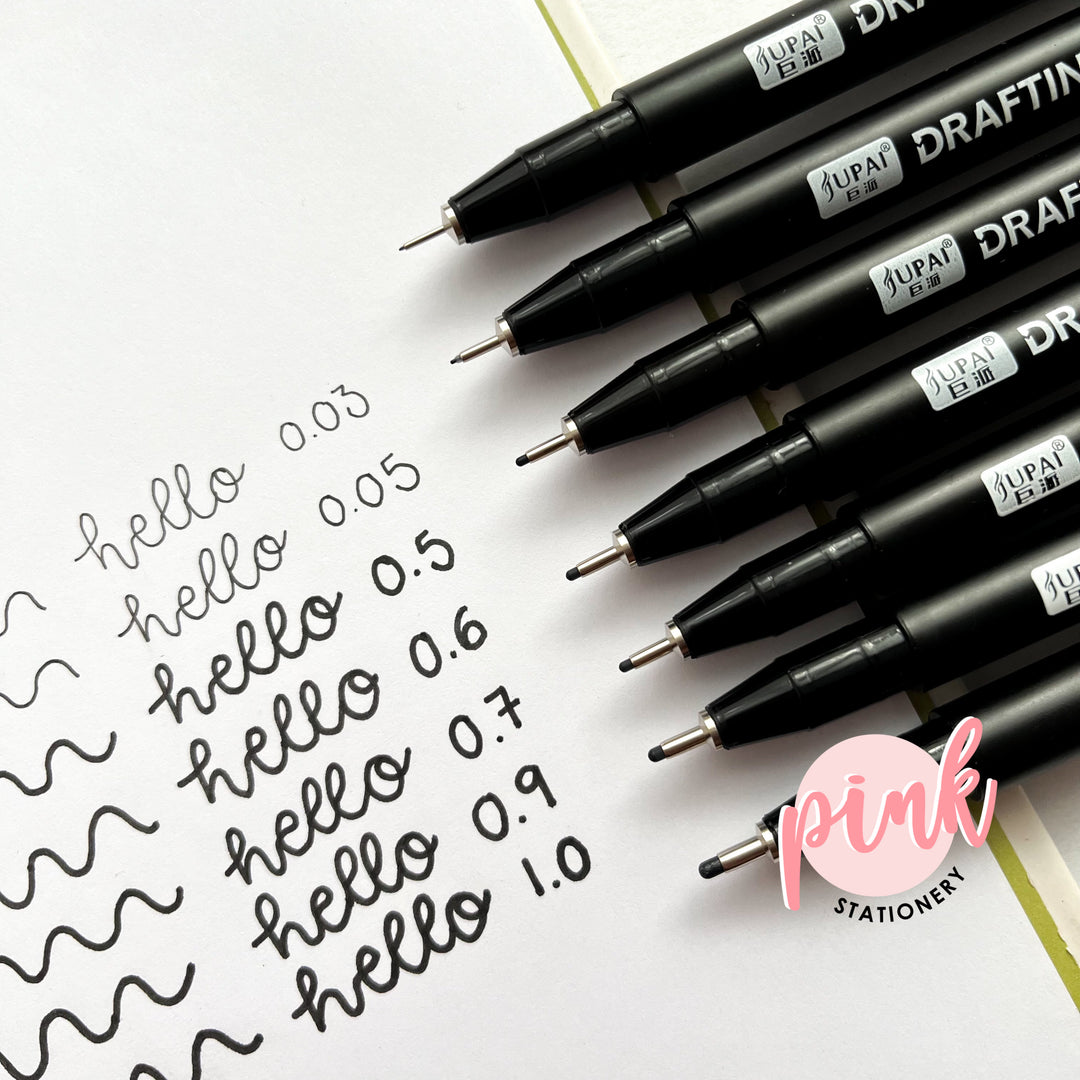 JUPAI® DRAFTIN
巨派
JUPAI® DRAFTIN
巨派
JUPAI® DRAFT
巨派
JUPAI® DRA
巨派
JUPAI®
巨派
JUPAI
hello 0.03
hello 0.05
hello 0.5
hello 0.6
hello 0.7
hello 0.9
hello 1.0
pink
STATIONERY